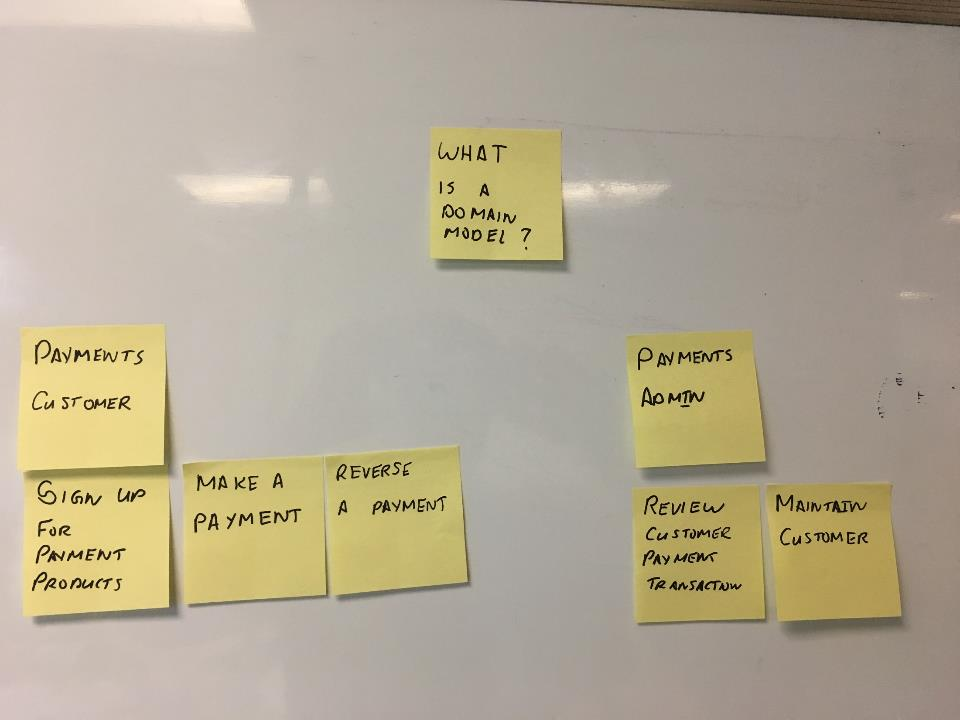 WHAT
IS A
DOMAIN
MODEL?
PAYMENTS
CUSTOMER
PAYMENTS
ADMIN
SIGN UP
FOR
PAYMENT
PRODUCTS
MAKE A
PAYMENT
REVERSE
A PAYMENT
REVIEW
CUSTOMER
PAYMENT
TRANSACTION
MAINTAIN
CUSTOMER